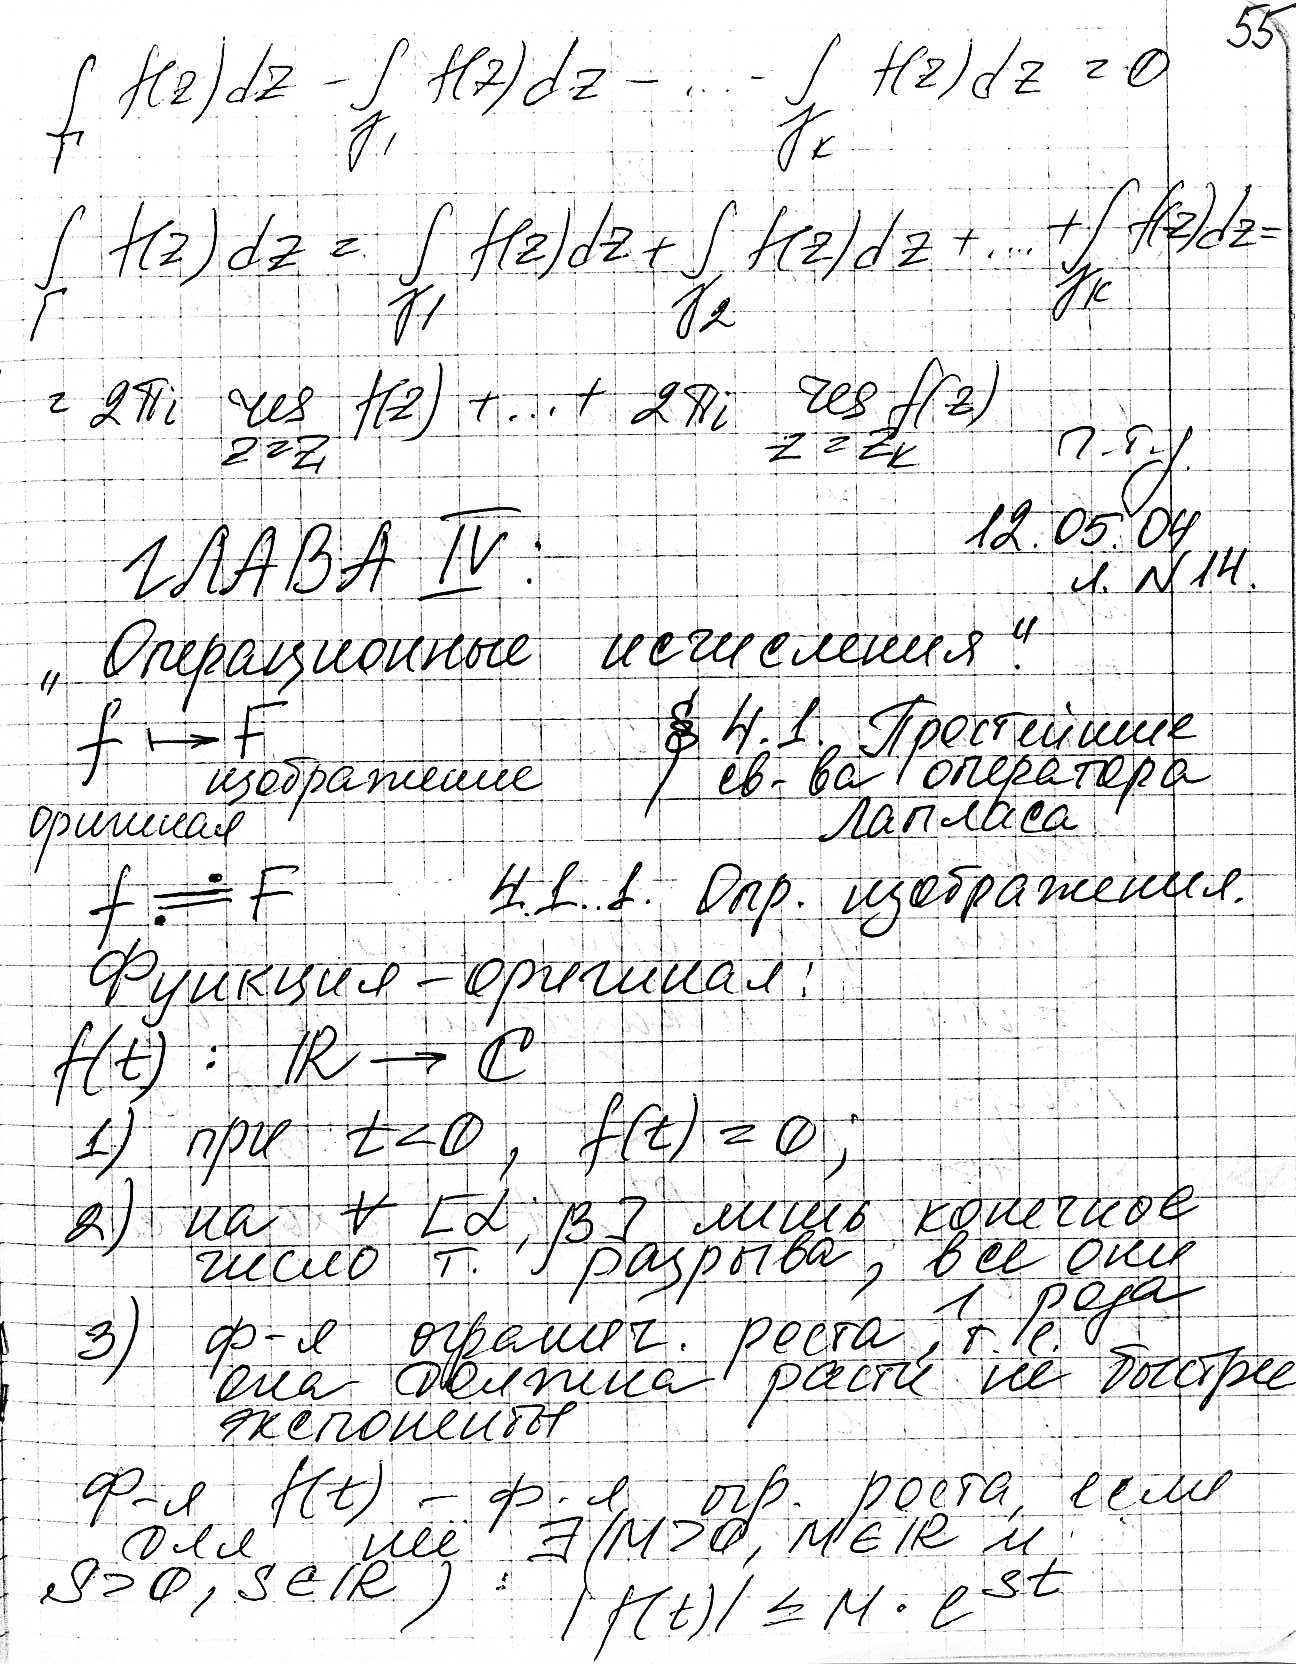 55
∫_Γ f(z)dz - ∫_γ₁ f(z)dz - ... - ∫_γκ f(z)dz = 0
∫_Γ f(z)dz = ∫_γ₁ f(z)dz + ∫_γ₂ f(z)dz + ... + ∫_γκ f(z)dz =
= 2πi res_{z=z₁} f(z) + ... + 2πi res_{z=zκ} f(z)
ч.т.д.
12.05.04
л. N14.
ГЛАВА IV:
„Операционные исчисления".
f ↦ F
изображение
оригинал
§ 4.1. Простейшие
св-ва оператора
Лапласа
f ≓ F
4.1.1. Опр. изображения.
Функция-оригинал:
f(t) : ℝ → ℂ
1) при t<0, f(t) = 0;
2) на ∀ [α; β] лишь конечное
число т. разрыва, все они
1 рода
3) ф-я огранич. роста, т.е.
она должна расти не быстрее
экспоненты
Ф-я f(t) - ф-я огр. роста, если
для неё ∃ (M>0, M∈ℝ и
S>0, S∈ℝ) : |f(t)| ≤ M · e^{St}